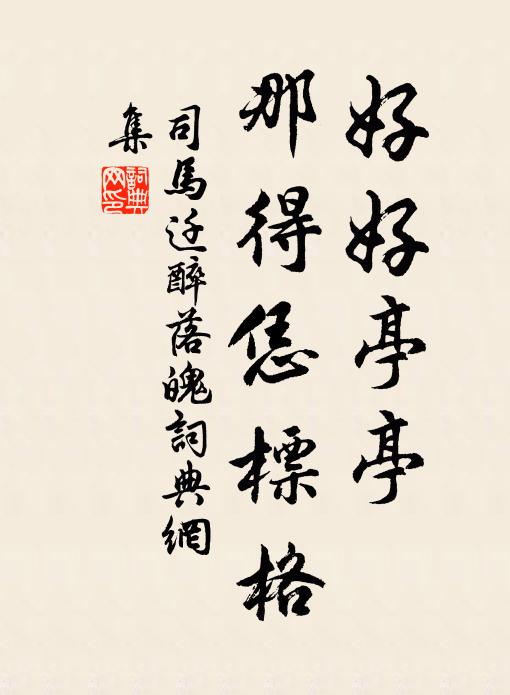 好好亭亭
那得恁標格
司馬迁醉落魄詞典網
集
詞典
网印